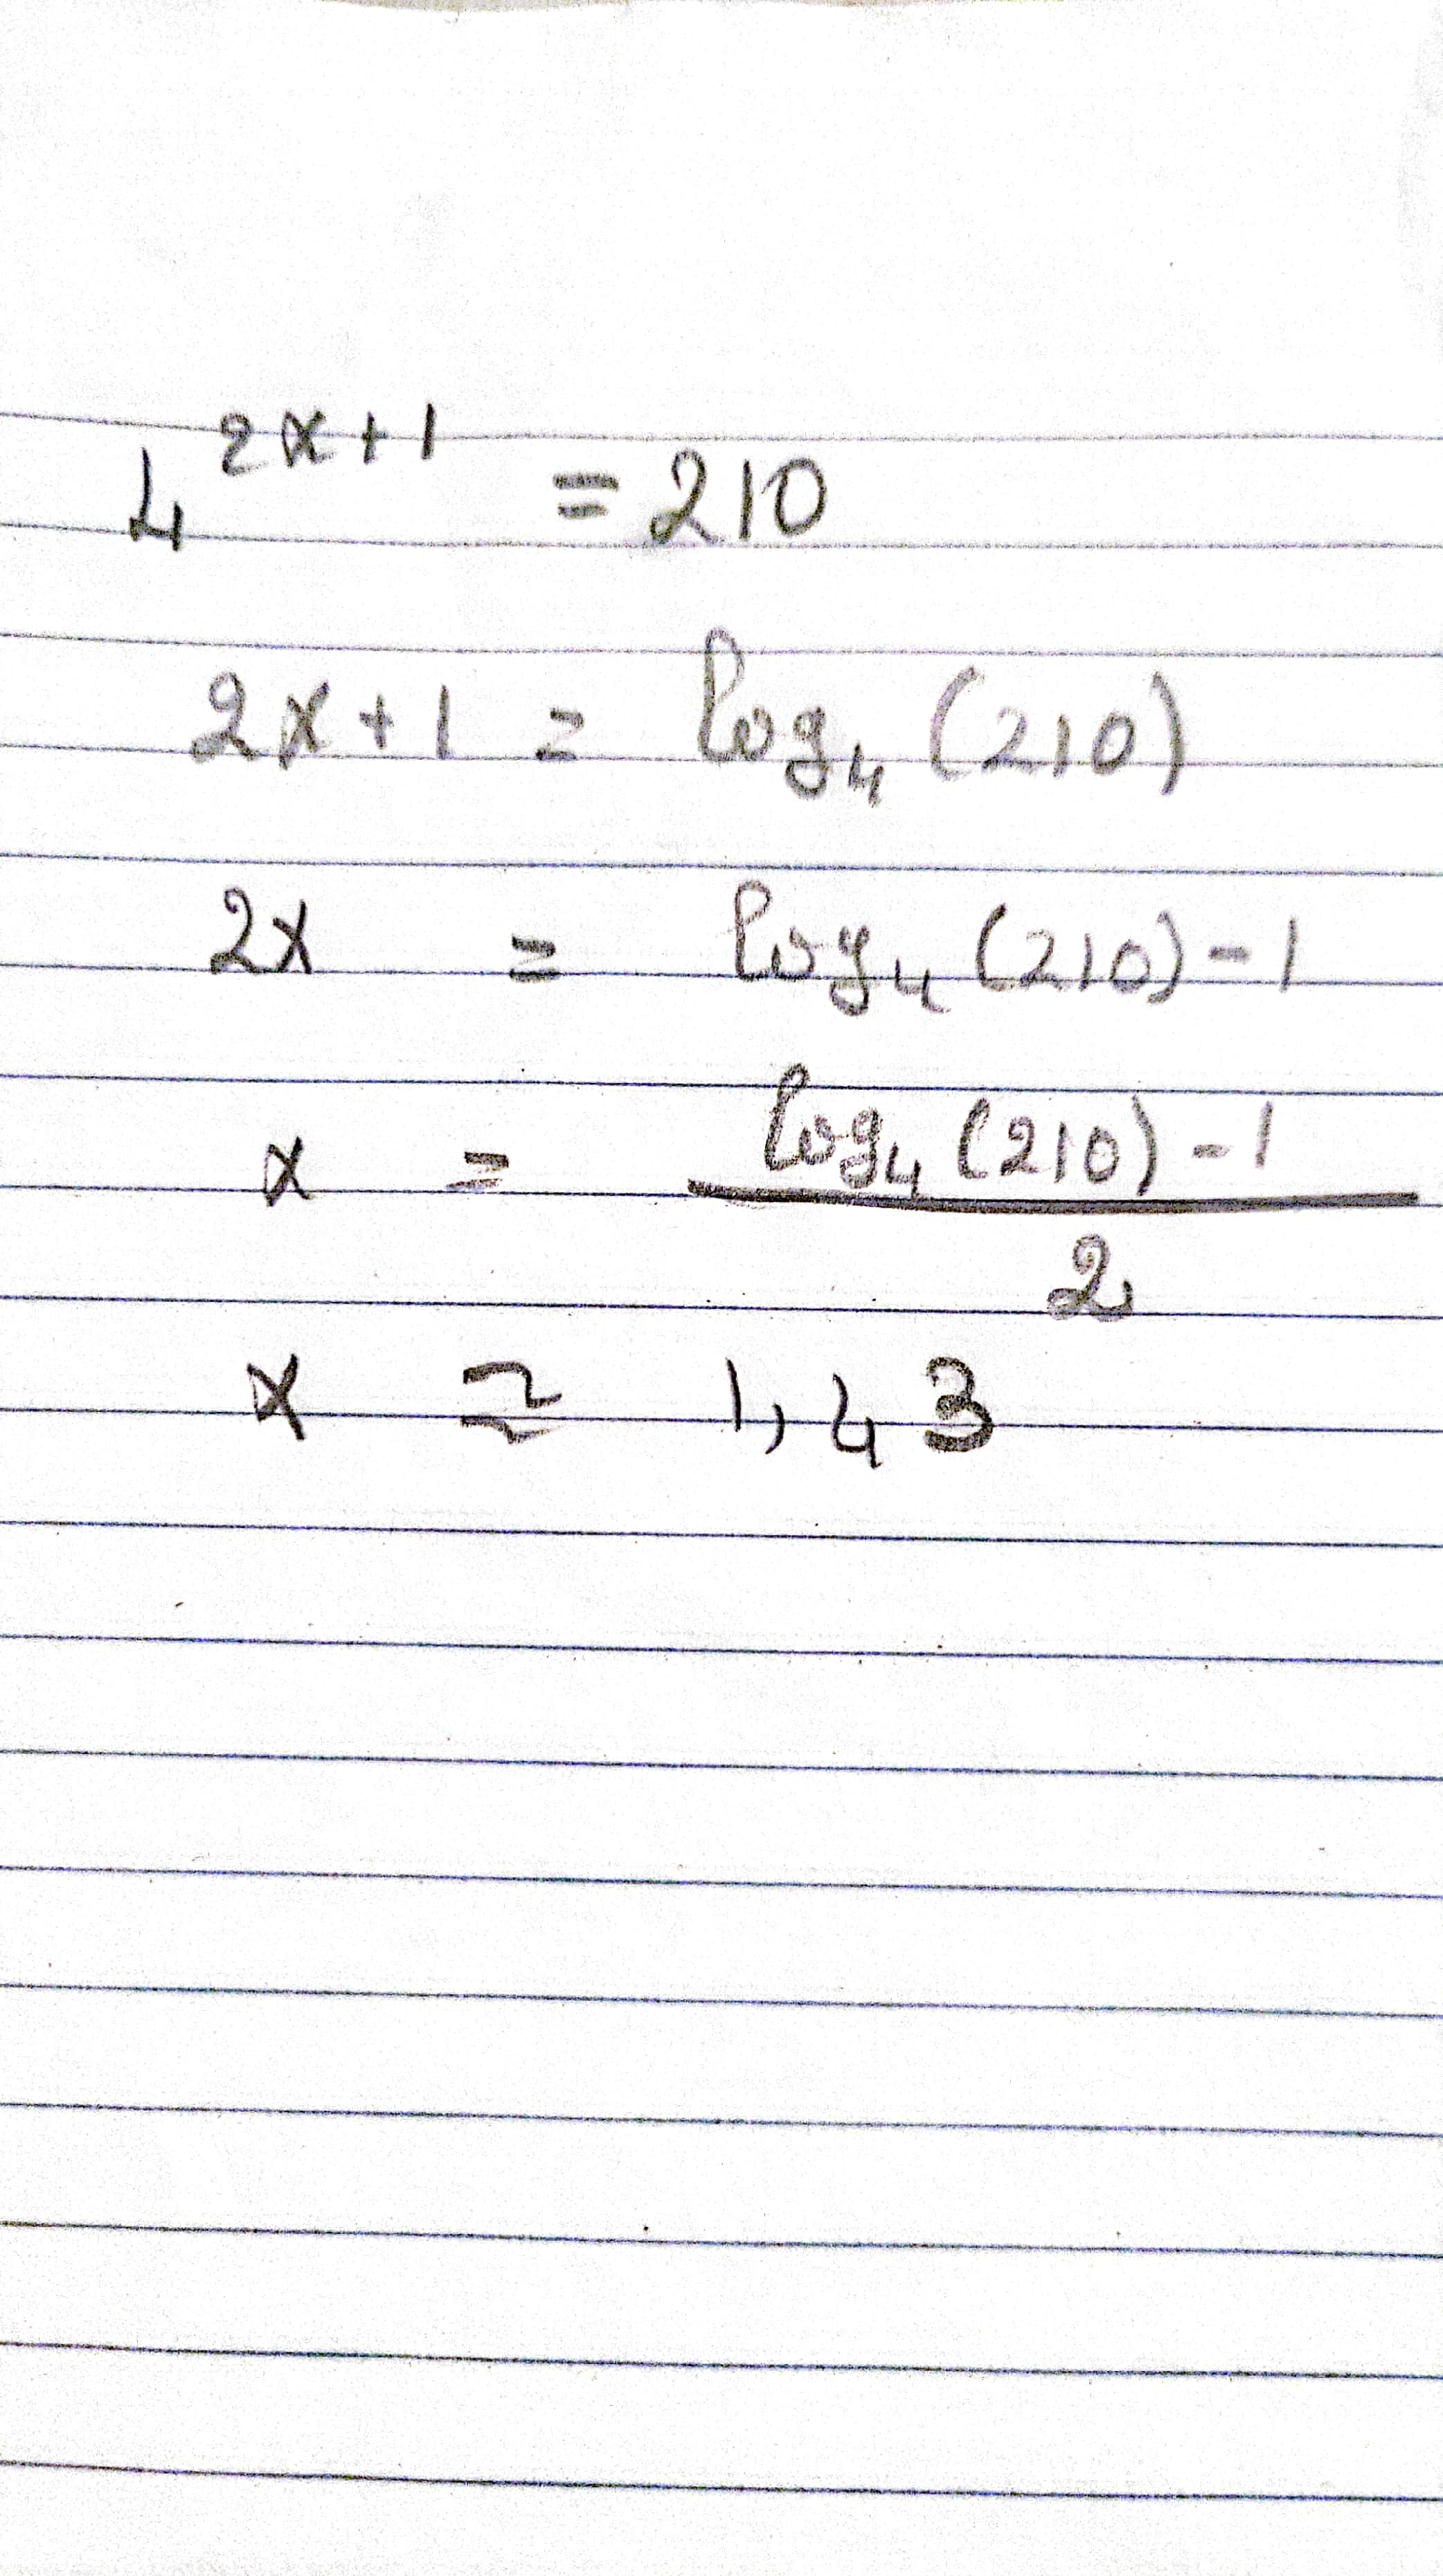 4^{2x+1} = 210
2x+1 = log₄ (210)
2x = log₄ (210) - 1
x = \frac{log₄ (210) - 1}{2}
x ≈ 1,43